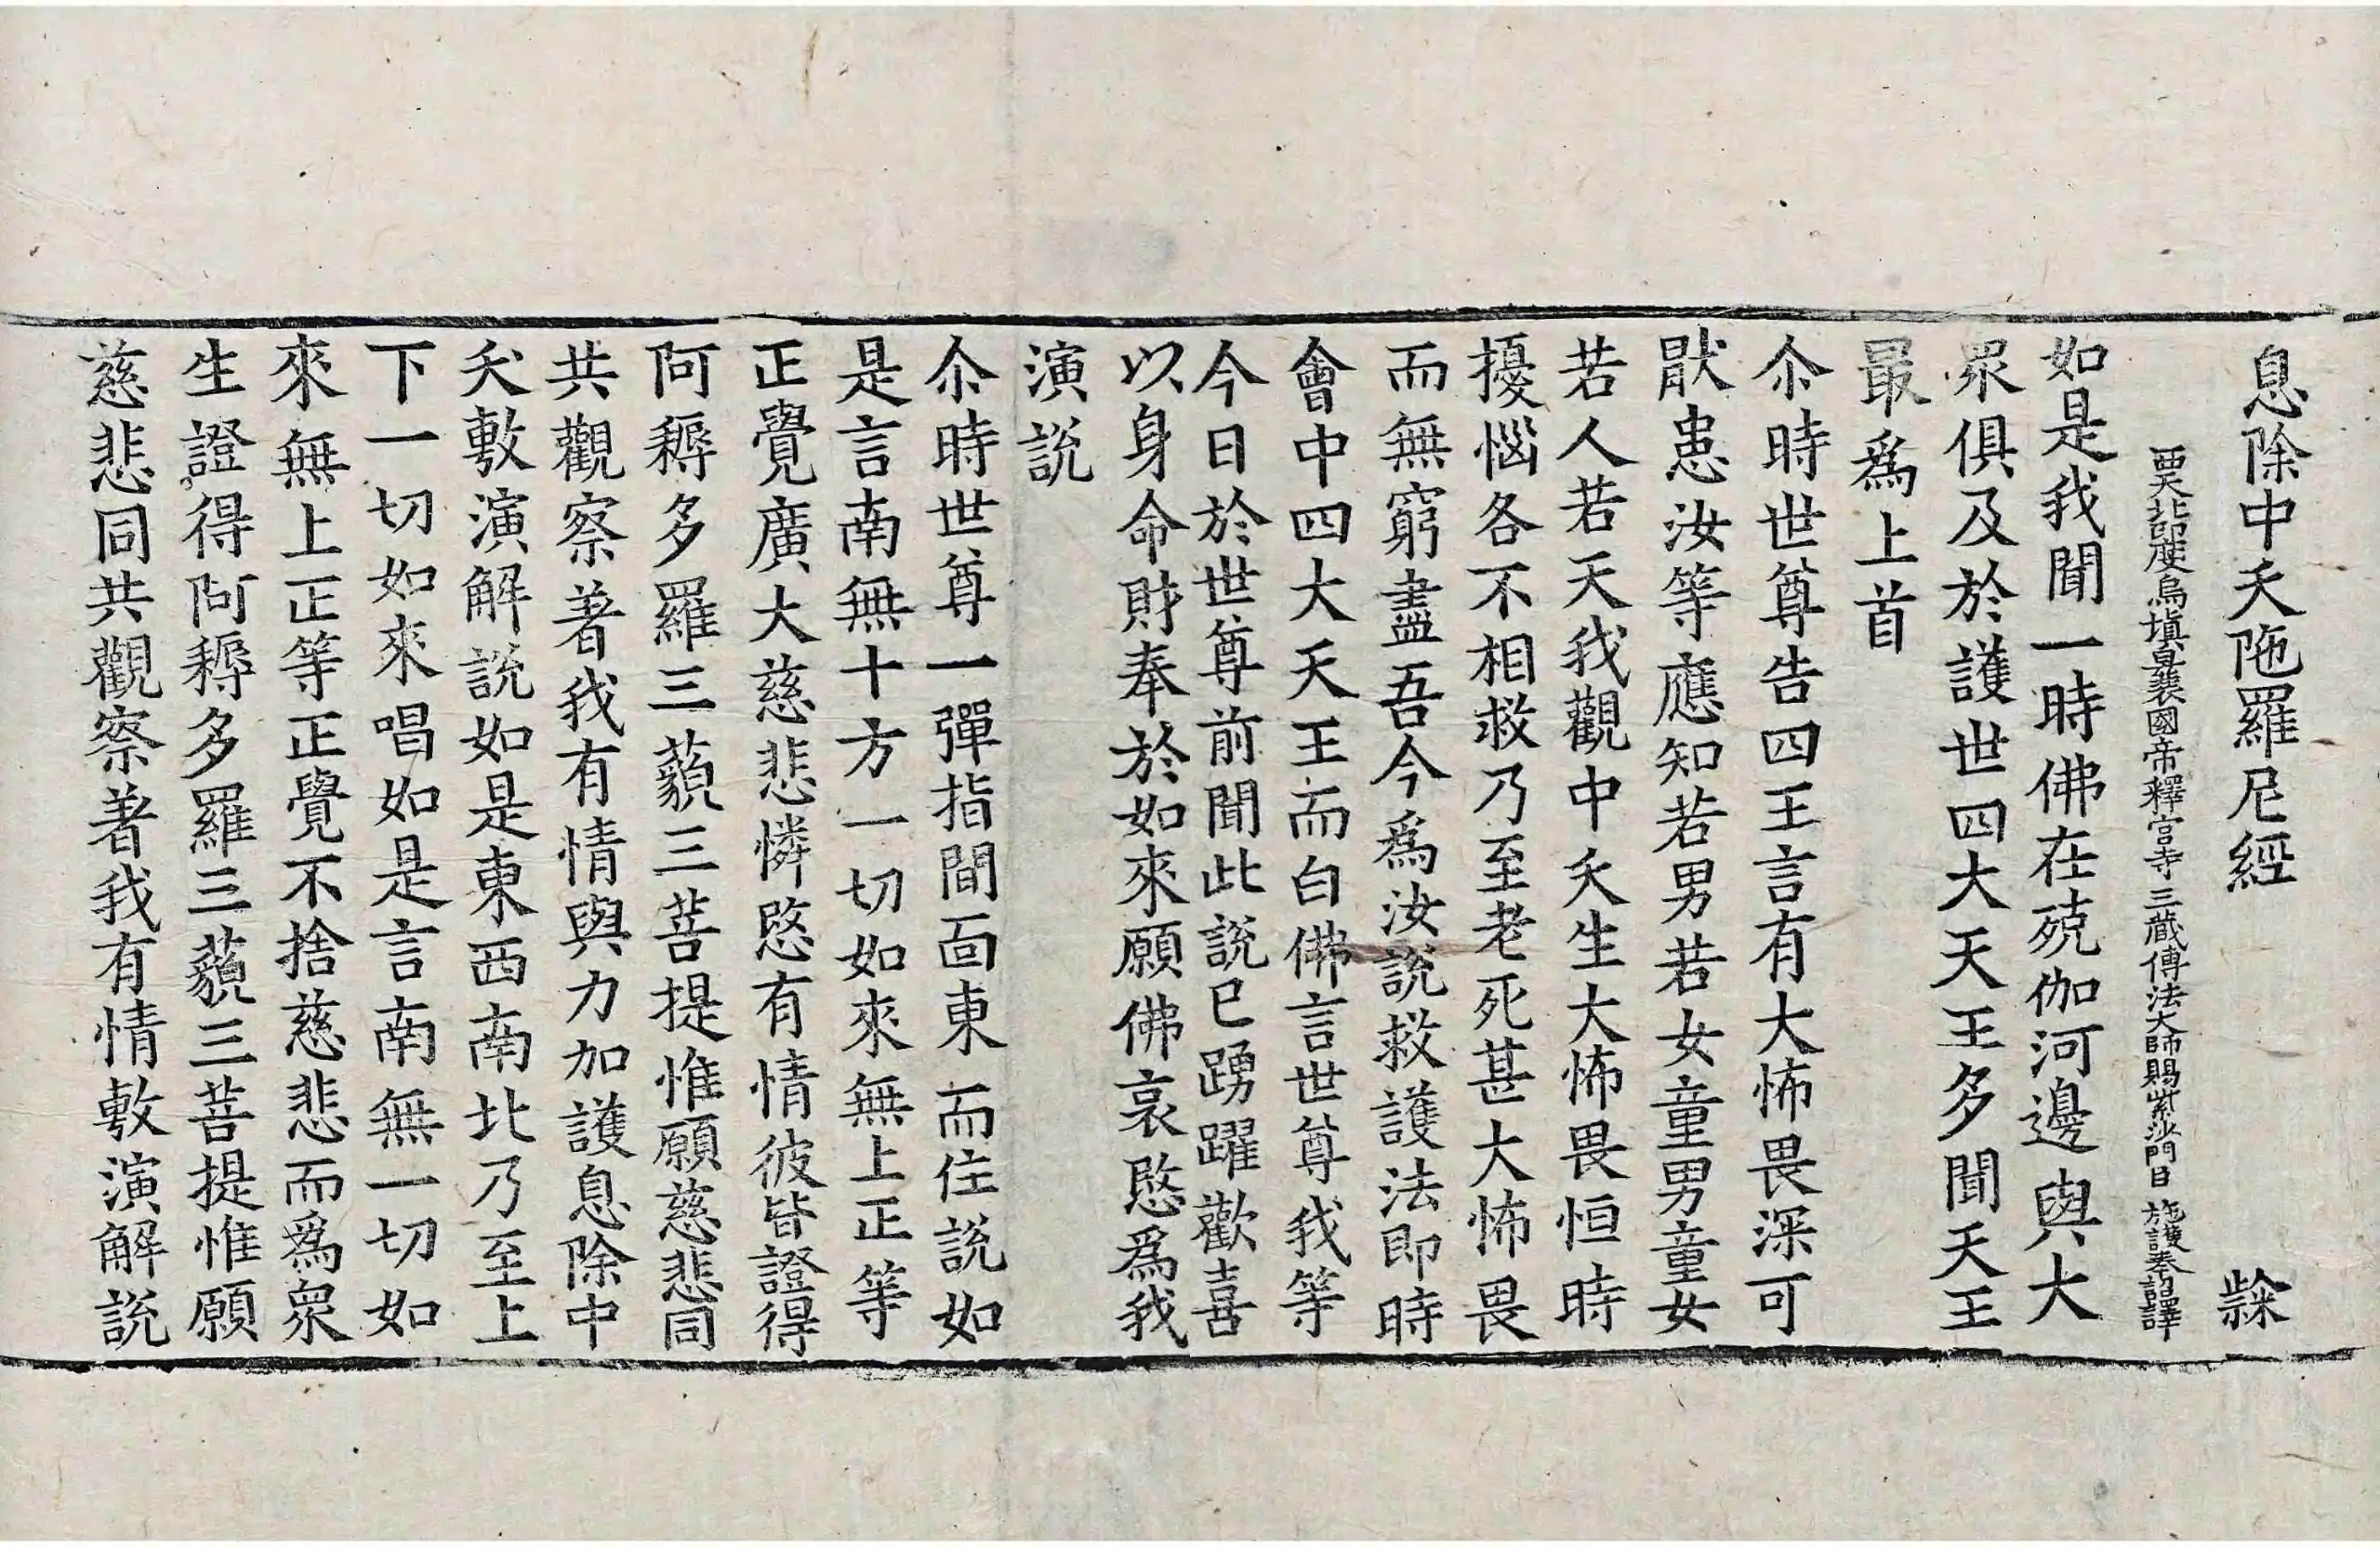 息除中夭陁羅尼經 㲘
西天北印度烏塡曩國帝釋宮寺三藏傅法大師賜紫沙門臣 施護奉 詔譯
如是我聞一時佛在殑伽河邊與大
眾俱及於護世四大天王多聞天王
最爲上首
尒時世尊告四王言有大怖畏深可
猒患汝等應知若男若女童男童女
若人若天我觀中夭生大怖畏恒時
擾惱各不相救乃至老死甚大怖畏
而無窮盡吾今爲汝說救護法即時
會中四大天王而白佛言世尊我等
今日於世尊前聞此說已踴躍歡喜
以身命財奉於如來願佛哀愍爲我
演說
尒時世尊一彈指間面東而住說如
是言南無十方一切如來無上正等
正覺廣大慈悲憐愍有情彼皆證得
阿耨多羅三藐三菩提惟願慈悲同
共觀察著我有情與力加護息除中
夭敷演解說如是東西南北乃至上
下一切如來唱如是言南無一切如
來無上正等正覺不捨慈悲而爲眾
生證得阿耨多羅三藐三菩提惟願
慈悲同共觀察著我有情敷演解說